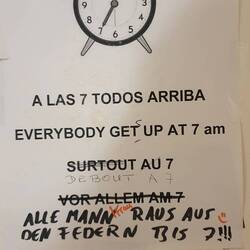 A LAS 7 TODOS ARRIBA
EVERYBODY GETS UP AT 7 am
SURTOUT AU 7
DEBOUT A 7
VOR ALLEM AM 7
ALLE MANN RAUS AUS
DEN FEDERN BIS 7!!!